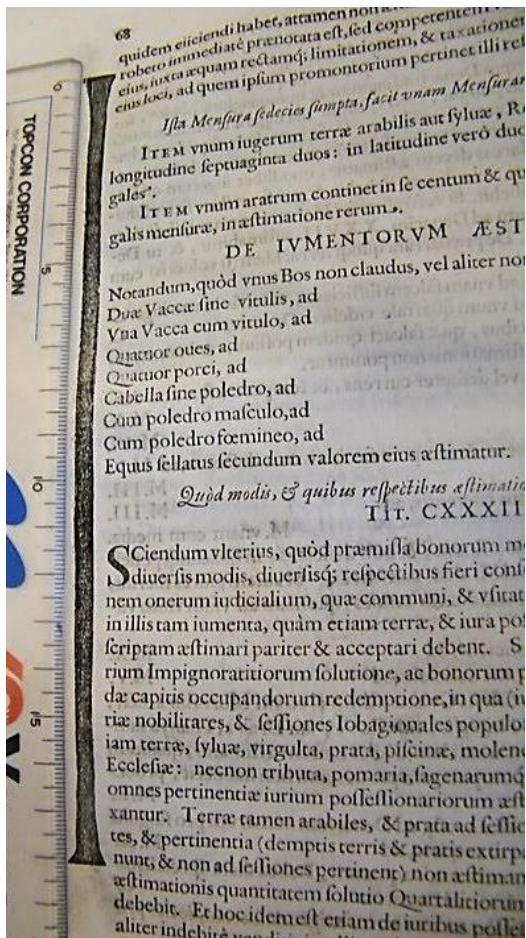 68
quidem eiiciendi habet, attamen non
robeto immediatè prænotata est, sed competentem
eius, iuxta æquam rectamq; limitationem, & taxatione
eius loci, ad quem ipsum promontorium pertinet illi
Ista Mensura sedecies sumpta, facit vnam Mensuram
ITEM vnum iugerum terræ arabilis aut syluæ,
longitudine septuaginta duos: in latitudine verò duo
gales.
ITEM vnum aratrum continet in se centum & qu
galis mensuræ, in æstimatione rerum.
DE IVMENTORVM ÆST
Notandum, quòd vnus Bos non claudus, vel aliter non
Duæ Vaccæ sine vitulis, ad
Vna Vacca cum vitulo, ad
Quatuor oues, ad
Quatuor porci, ad
Cabella sine poledro, ad
Cum poledro masculo, ad
Cum poledro fœmineo, ad
Equus sellatus secundum valorem eius æstimatur.
Quòd modis, & quibus respectibus æstimatio
TIT. CXXXII
SCiendum vlterius, quòd præmissa bonorum m
diuersis modis, diuersisq; respectibus fieri cons
nem onerum iudicialium, quæ communi, & vsitat
in illis tam iumenta, quàm etiam terræ, & iura pos
scriptam æstimari pariter & acceptari debent. S
rium Impignoratitiorum solutione, ac bonorum p
dæ capitis occupandorum redemptione, in qua (iu
riæ nobilitares, & sessiones Iobagionales populo
iam terræ, syluæ, virgulta, prata, piscinæ, molend
Ecclesiæ: necnon tributa, pomaria, sagenarumq
omnes pertinentiæ iurium possessionariorum æst
xantur. Terræ tamen arabiles, & prata ad sessio
tes, & pertinentia (demptis terris & pratis extirpa
nunt, & non ad sessiones pertinent) non æstiman
æstimationis quantitatem solutio Quartalitiorum
debebit. Et hoc idem est etiam de iuribus posses
aliter indebitè
TOPCON CORPORATION
0
5
10
15